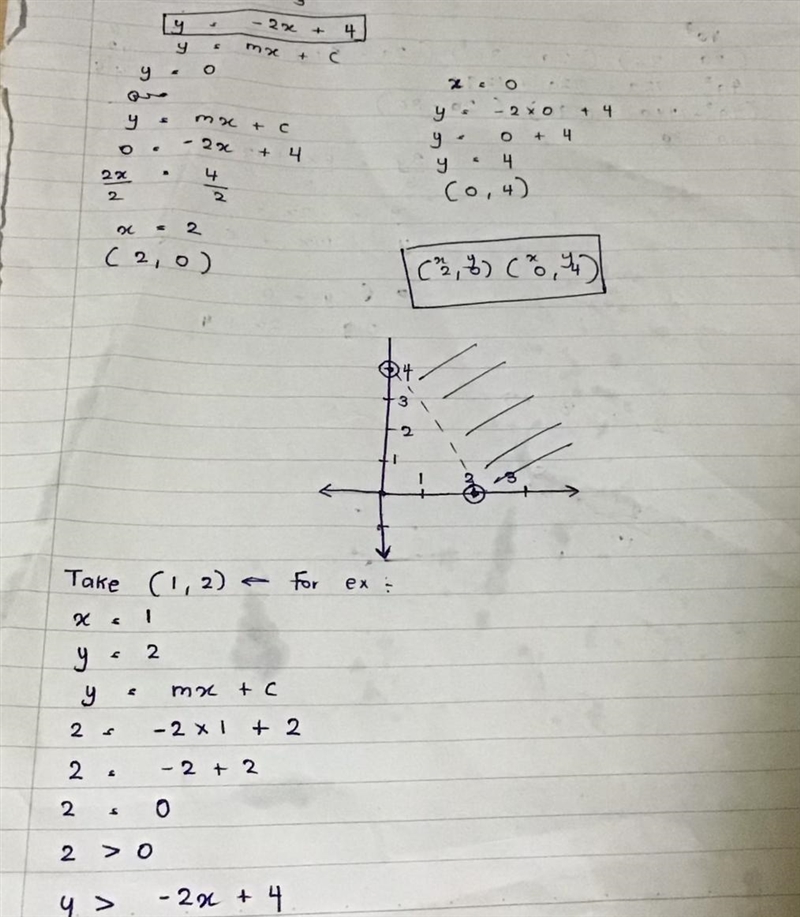 y = -2x + 4
y = mx + c
y = 0
y = mx + c
0 = -2x + 4
2x/2 = 4/2
x = 2
(2, 0)
x = 0
y = -2 x 0 + 4
y = 0 + 4
y = 4
(0, 4)
x y x y
(2, 0) (0, 4)
4
3
2
1
1 2 3
Take (1, 2) ← For ex :-
x = 1
y = 2
y = mx + c
2 = -2 x 1 + 2
2 = -2 + 2
2 = 0
2 > 0
y > -2x + 4